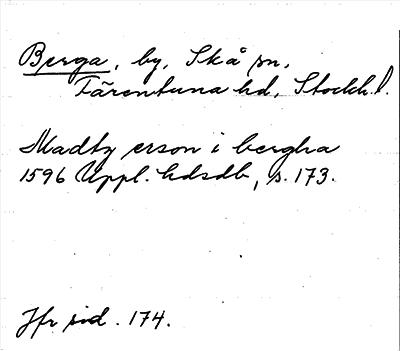 Berga, by, Skå sn,
Färentuna hd, Stockh. l.
Madtz erson i bergha
1596 Uppl. hdsdb, s. 173.
Jfr sid. 174.